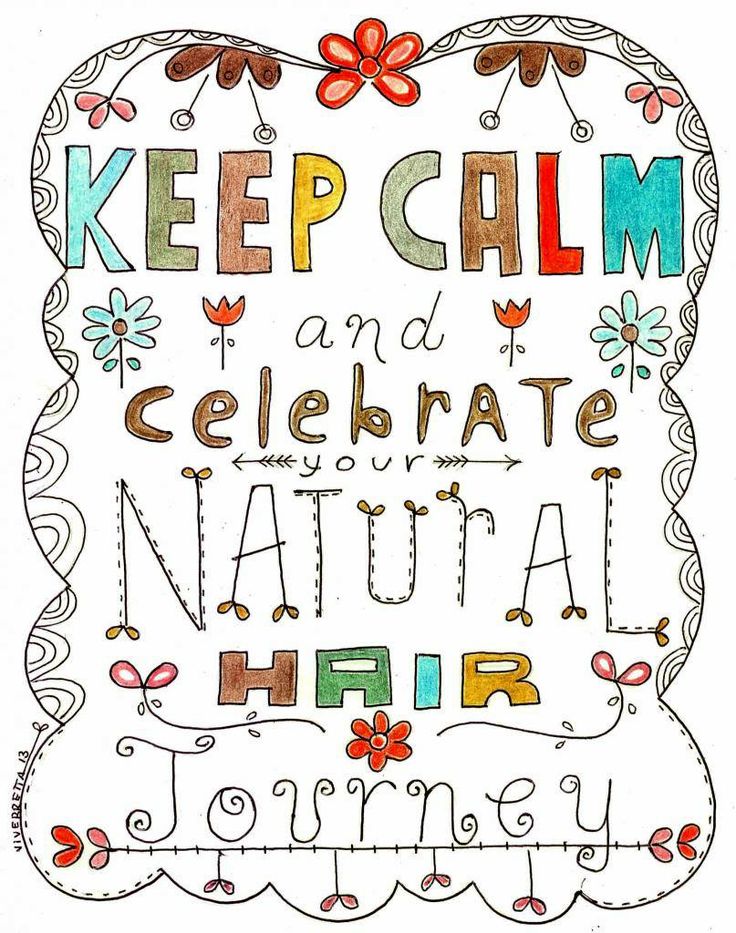 KEEP CALM
and
celebrATe
your
NATUrAL
HAIR
Journey
VIVERRETTA 13